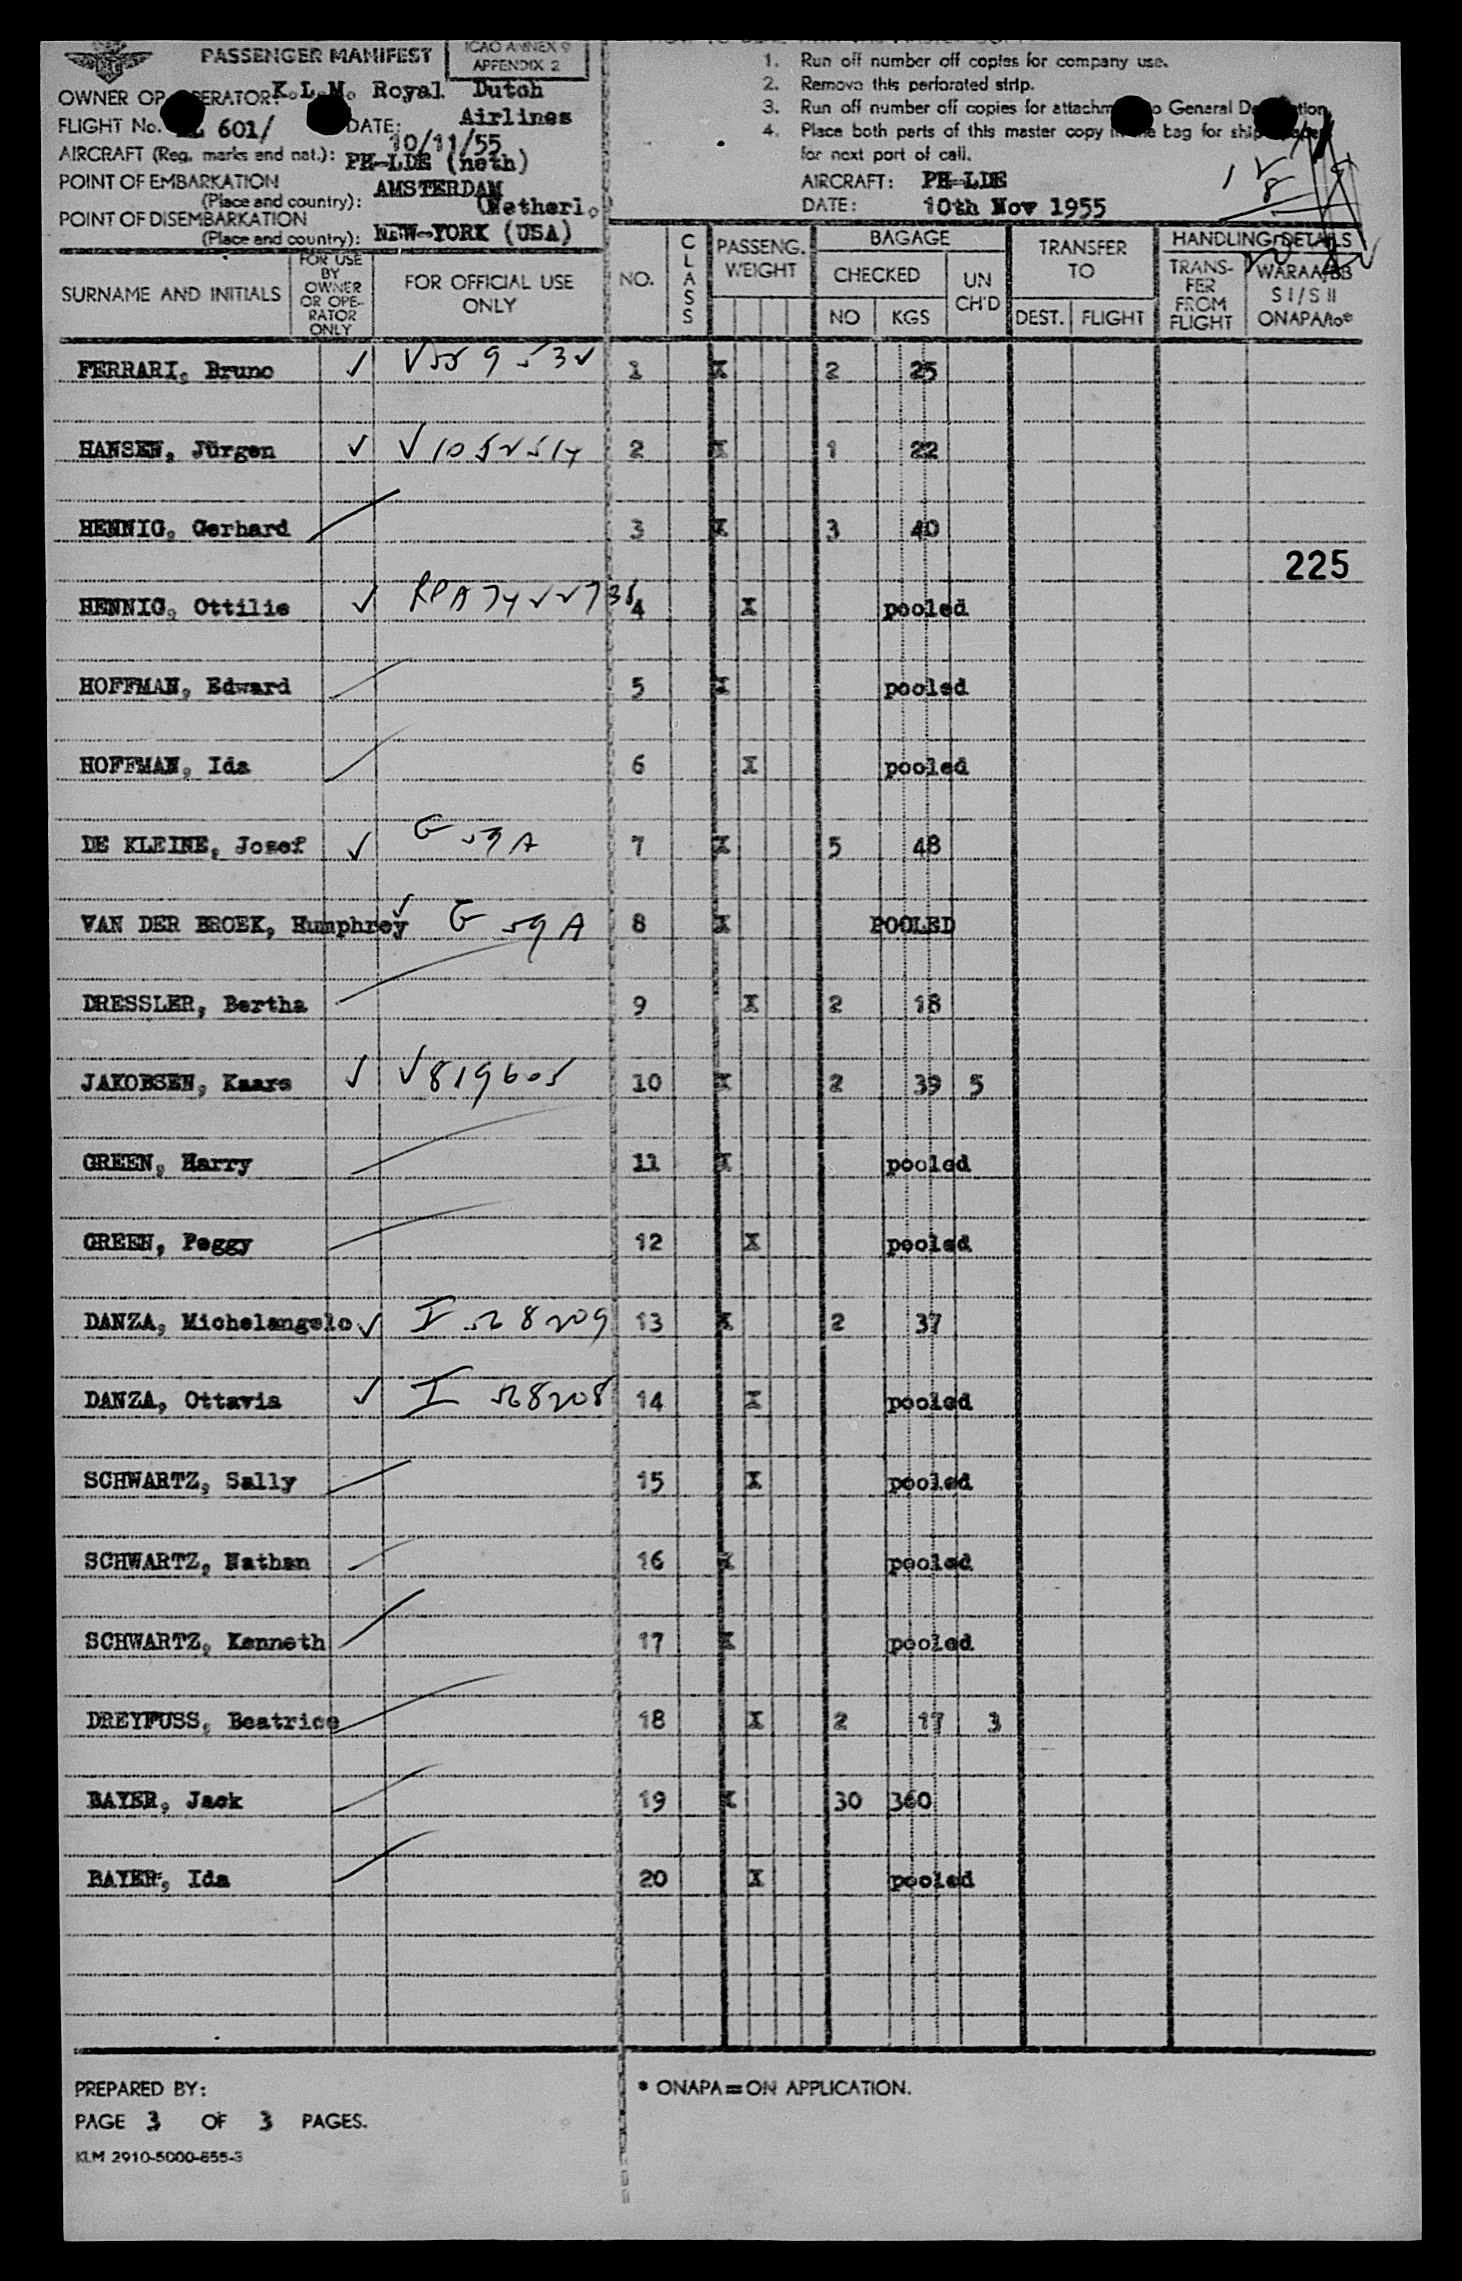 PASSENGER MANIFEST
ICAO ANNEX 9
APPENDIX 2
OWNER OR OPERATOR: K.L.M. Royal Dutch
Airlines
FLIGHT No. 601/ DATE: 10/11/55
AIRCRAFT (Reg. marks and nat.): PH-LDE (neth)
POINT OF EMBARKATION
(Place and country): AMSTERDAM
(Netherl.
POINT OF DISEMBARKATION
(Place and country): NEW-YORK (USA)
1. Run off number off copies for company use.
2. Remove this perforated strip.
3. Run off number off copies for attachm General De tion
4. Place both parts of this master copy in the bag for ship
for next port of call.
AIRCRAFT: PH-LDE
DATE: 10th Nov 1955
SURNAME AND INITIALS
FOR USE
BY
OWNER
OR OPE-
RATOR
ONLY
FOR OFFICIAL USE
ONLY
NO.
CLASS
PASSENG.
WEIGHT
BAGAGE
CHECKED
NO KGS
UN
CH'D
TRANSFER
TO
DEST. FLIGHT
HANDLING DETAILS
TRANS-
FER
FROM
FLIGHT
WARAA/BB
S I / S II
ONAPA/to*
FERRARI, Bruno 1 X 2 25
HANSEN, Jürgen 2 X 1 22
HENNIG, Gerhard 3 X 3 40
225
HENNIG, Ottilie 4 X pooled
HOFFMAN, Edward 5 X pooled
HOFFMAN, Ida 6 X pooled
DE KLEINE, Josef ✓ G 59A 7 X 5 48
VAN DER BROEK, Humphrey ✓ G 59A 8 X POOLED
DRESSLER, Bertha 9 X 2 18
JAKOBSEN, Kaare ✓ V819605 10 X 2 39 5
GREEN, Harry 11 X pooled
GREEN, Peggy 12 X pooled
DANZA, Michelangelo ✓ I 528209 13 X 2 37
DANZA, Ottavia ✓ I 528208 14 X pooled
SCHWARTZ, Sally 15 X pooled
SCHWARTZ, Nathan 16 X pooled
SCHWARTZ, Kenneth 17 X pooled
DREYFUSS, Beatrice 18 X 2 17 3
BAYER, Jack 19 X 30 360
BAYER, Ida 20 X pooled
PREPARED BY:
* ONAPA=ON APPLICATION.
PAGE 3 OF 3 PAGES.
KLM 2910-5000-655-3